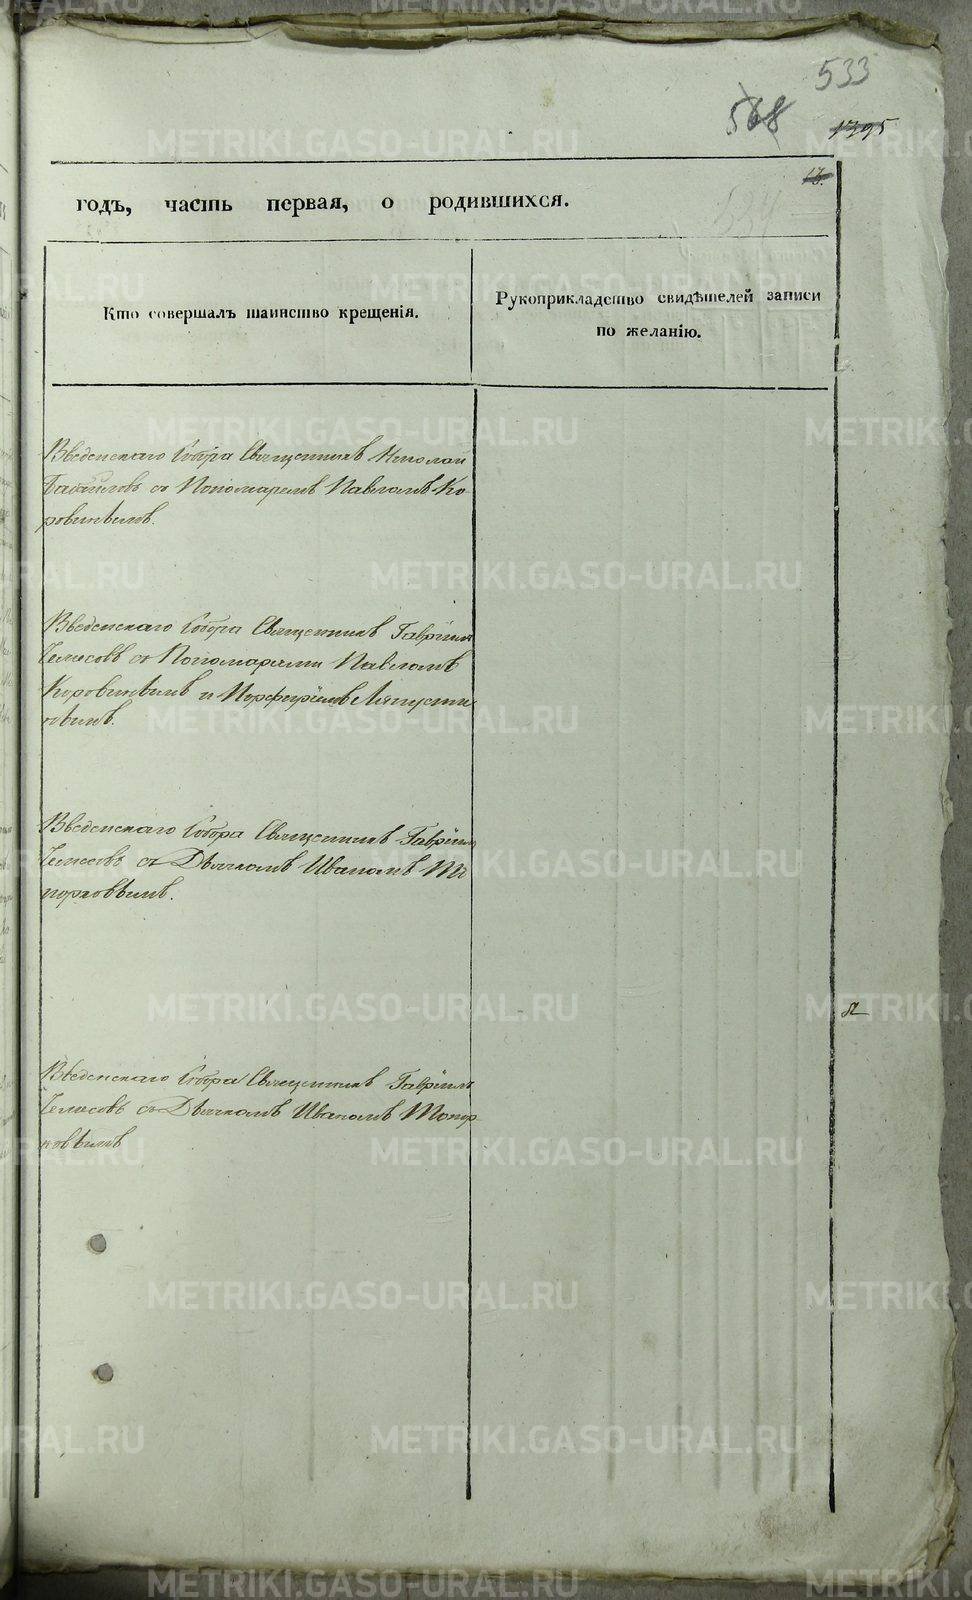 533
568
1395
13.
годъ, часть первая, о родившихся.
Кто совершалъ таинство крещенія.
Рукоприкладство свидѣтелей записи
по желанію.
Введенскаго Собора Священникъ Николай
съ Пономаремъ Павломъ Ко
ровинымъ.
Введенскаго Собора Священникъ Гавріилъ
съ Пономарями Павломъ
Коровинымъ и Порфиріемъ Ляпусти
нымъ.
Введенскаго Собора Священникъ Гавріилъ
съ Дьячкомъ Иваномъ То
порковымъ.
Введенскаго Собора Священникъ Гавріилъ
съ Дьячкомъ Иваномъ Топор
ковымъ
METRIKI.GASO-URAL.RU